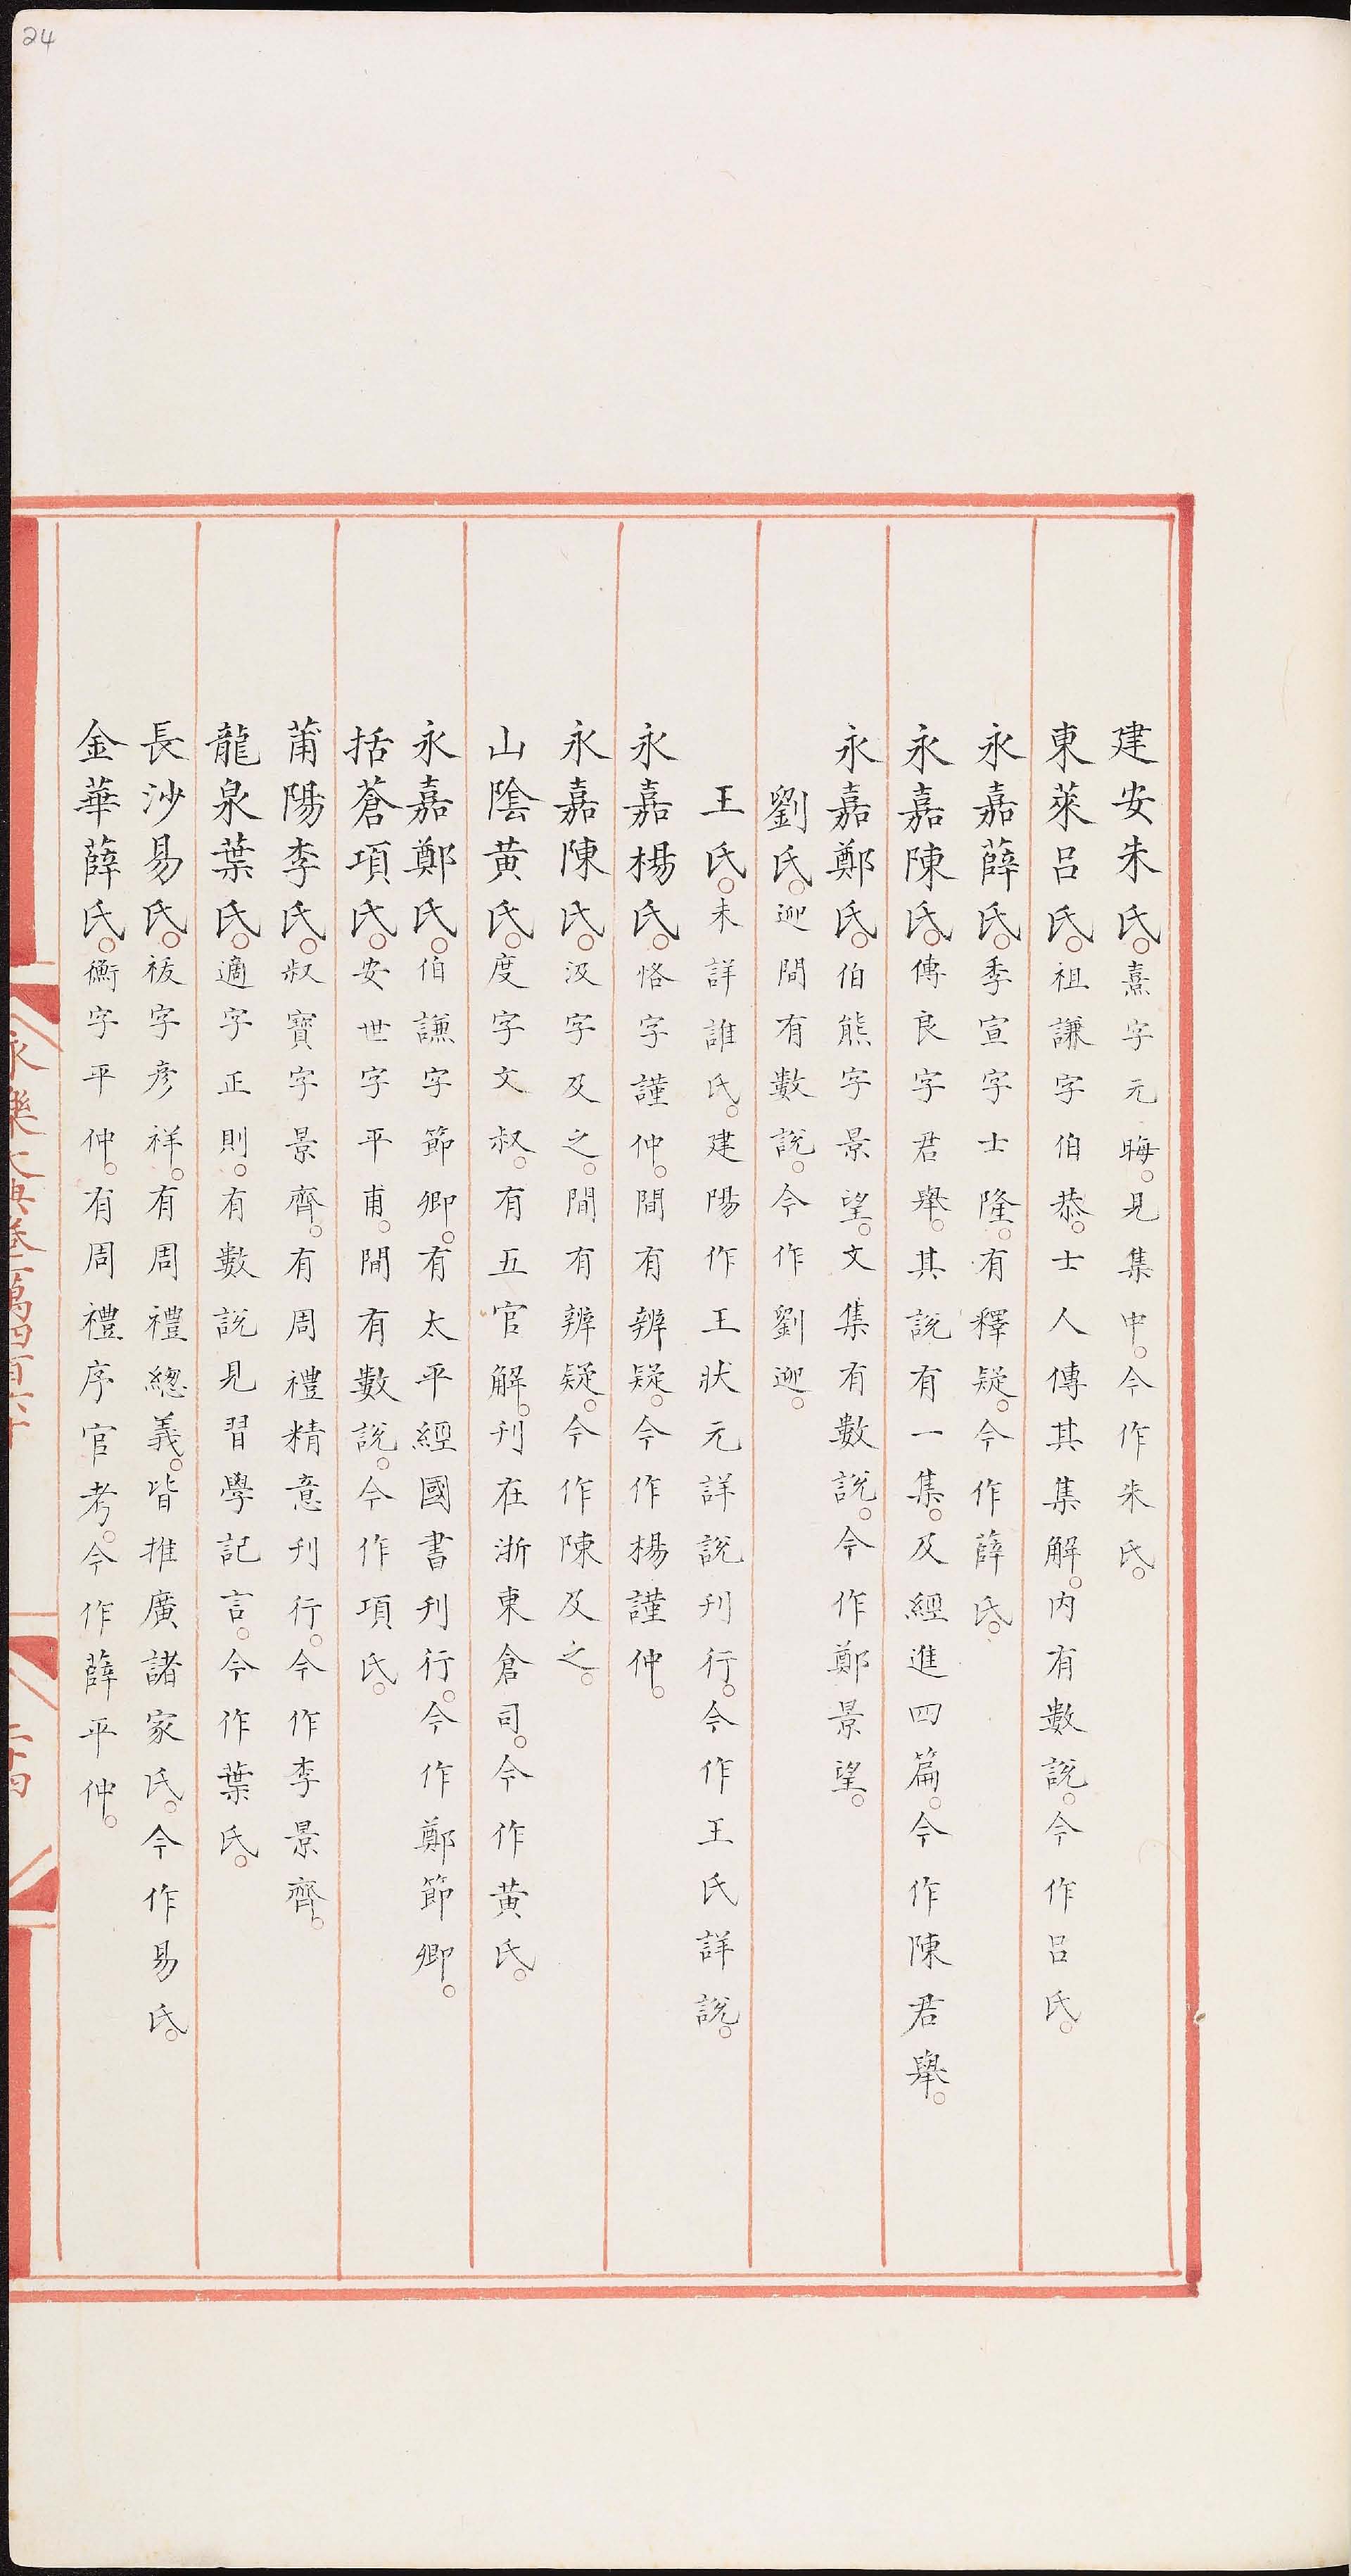 24
建安朱氏。熹字元晦。見集中。今作朱氏。
東萊呂氏。祖謙字伯恭。士人傳其集解。內有數說。今作呂氏。
永嘉薛氏。季宣字士隆。有釋疑。今作薛氏。
永嘉陳氏。傳良字君舉。其說有一集。及經進四篇。今作陳君舉。
永嘉鄭氏。伯熊字景望。文集有數說。今作鄭景望。
劉氏。迎間有數說。今作劉迎。
王氏。未詳誰氏。建陽作王狀元詳說刊行。今作王氏詳說。
永嘉楊氏。恪字謹仲。間有辨疑。今作楊謹仲。
永嘉陳氏。汲字及之。間有辨疑。今作陳及之。
山陰黃氏。度字文叔。有五官解。刊在浙東倉司。今作黃氏。
永嘉鄭氏。伯謙字節卿。有太平經國書刊行。今作鄭節卿。
括蒼項氏。安世字平甫。間有數說。今作項氏。
莆陽李氏。叔寶字景齊。有周禮精意刊行。今作李景齊。
龍泉葉氏。適字正則。有數說見習學記言。今作葉氏。
長沙易氏。祓字彥祥。有周禮總義。皆推廣諸家氏。今作易氏。
金華薛氏。衡字平仲。有周禮序官考。今作薛平仲。
永樂大典卷一萬四百六十
二十四